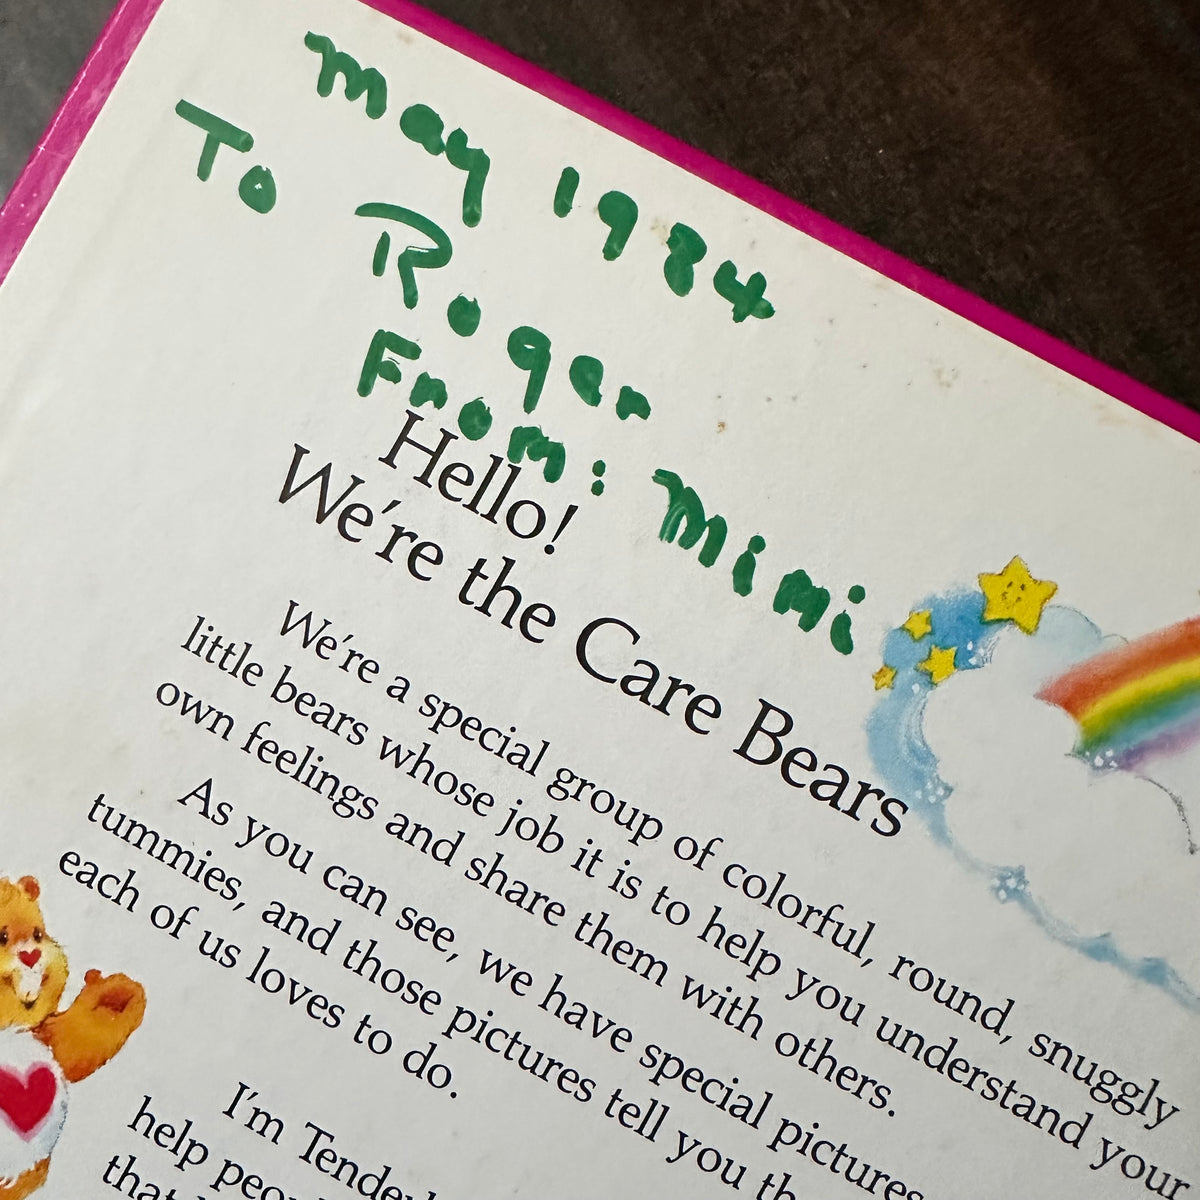 May 1984
To Roger
From: Mimi
Hello!
We're the Care Bears
We're a special group of colorful, round, snuggly
little bears whose job it is to help you understand your
own feelings and share them with others.
As you can see, we have special pictures
tummies, and those pictures tell you
each of us loves to do.
I'm
help